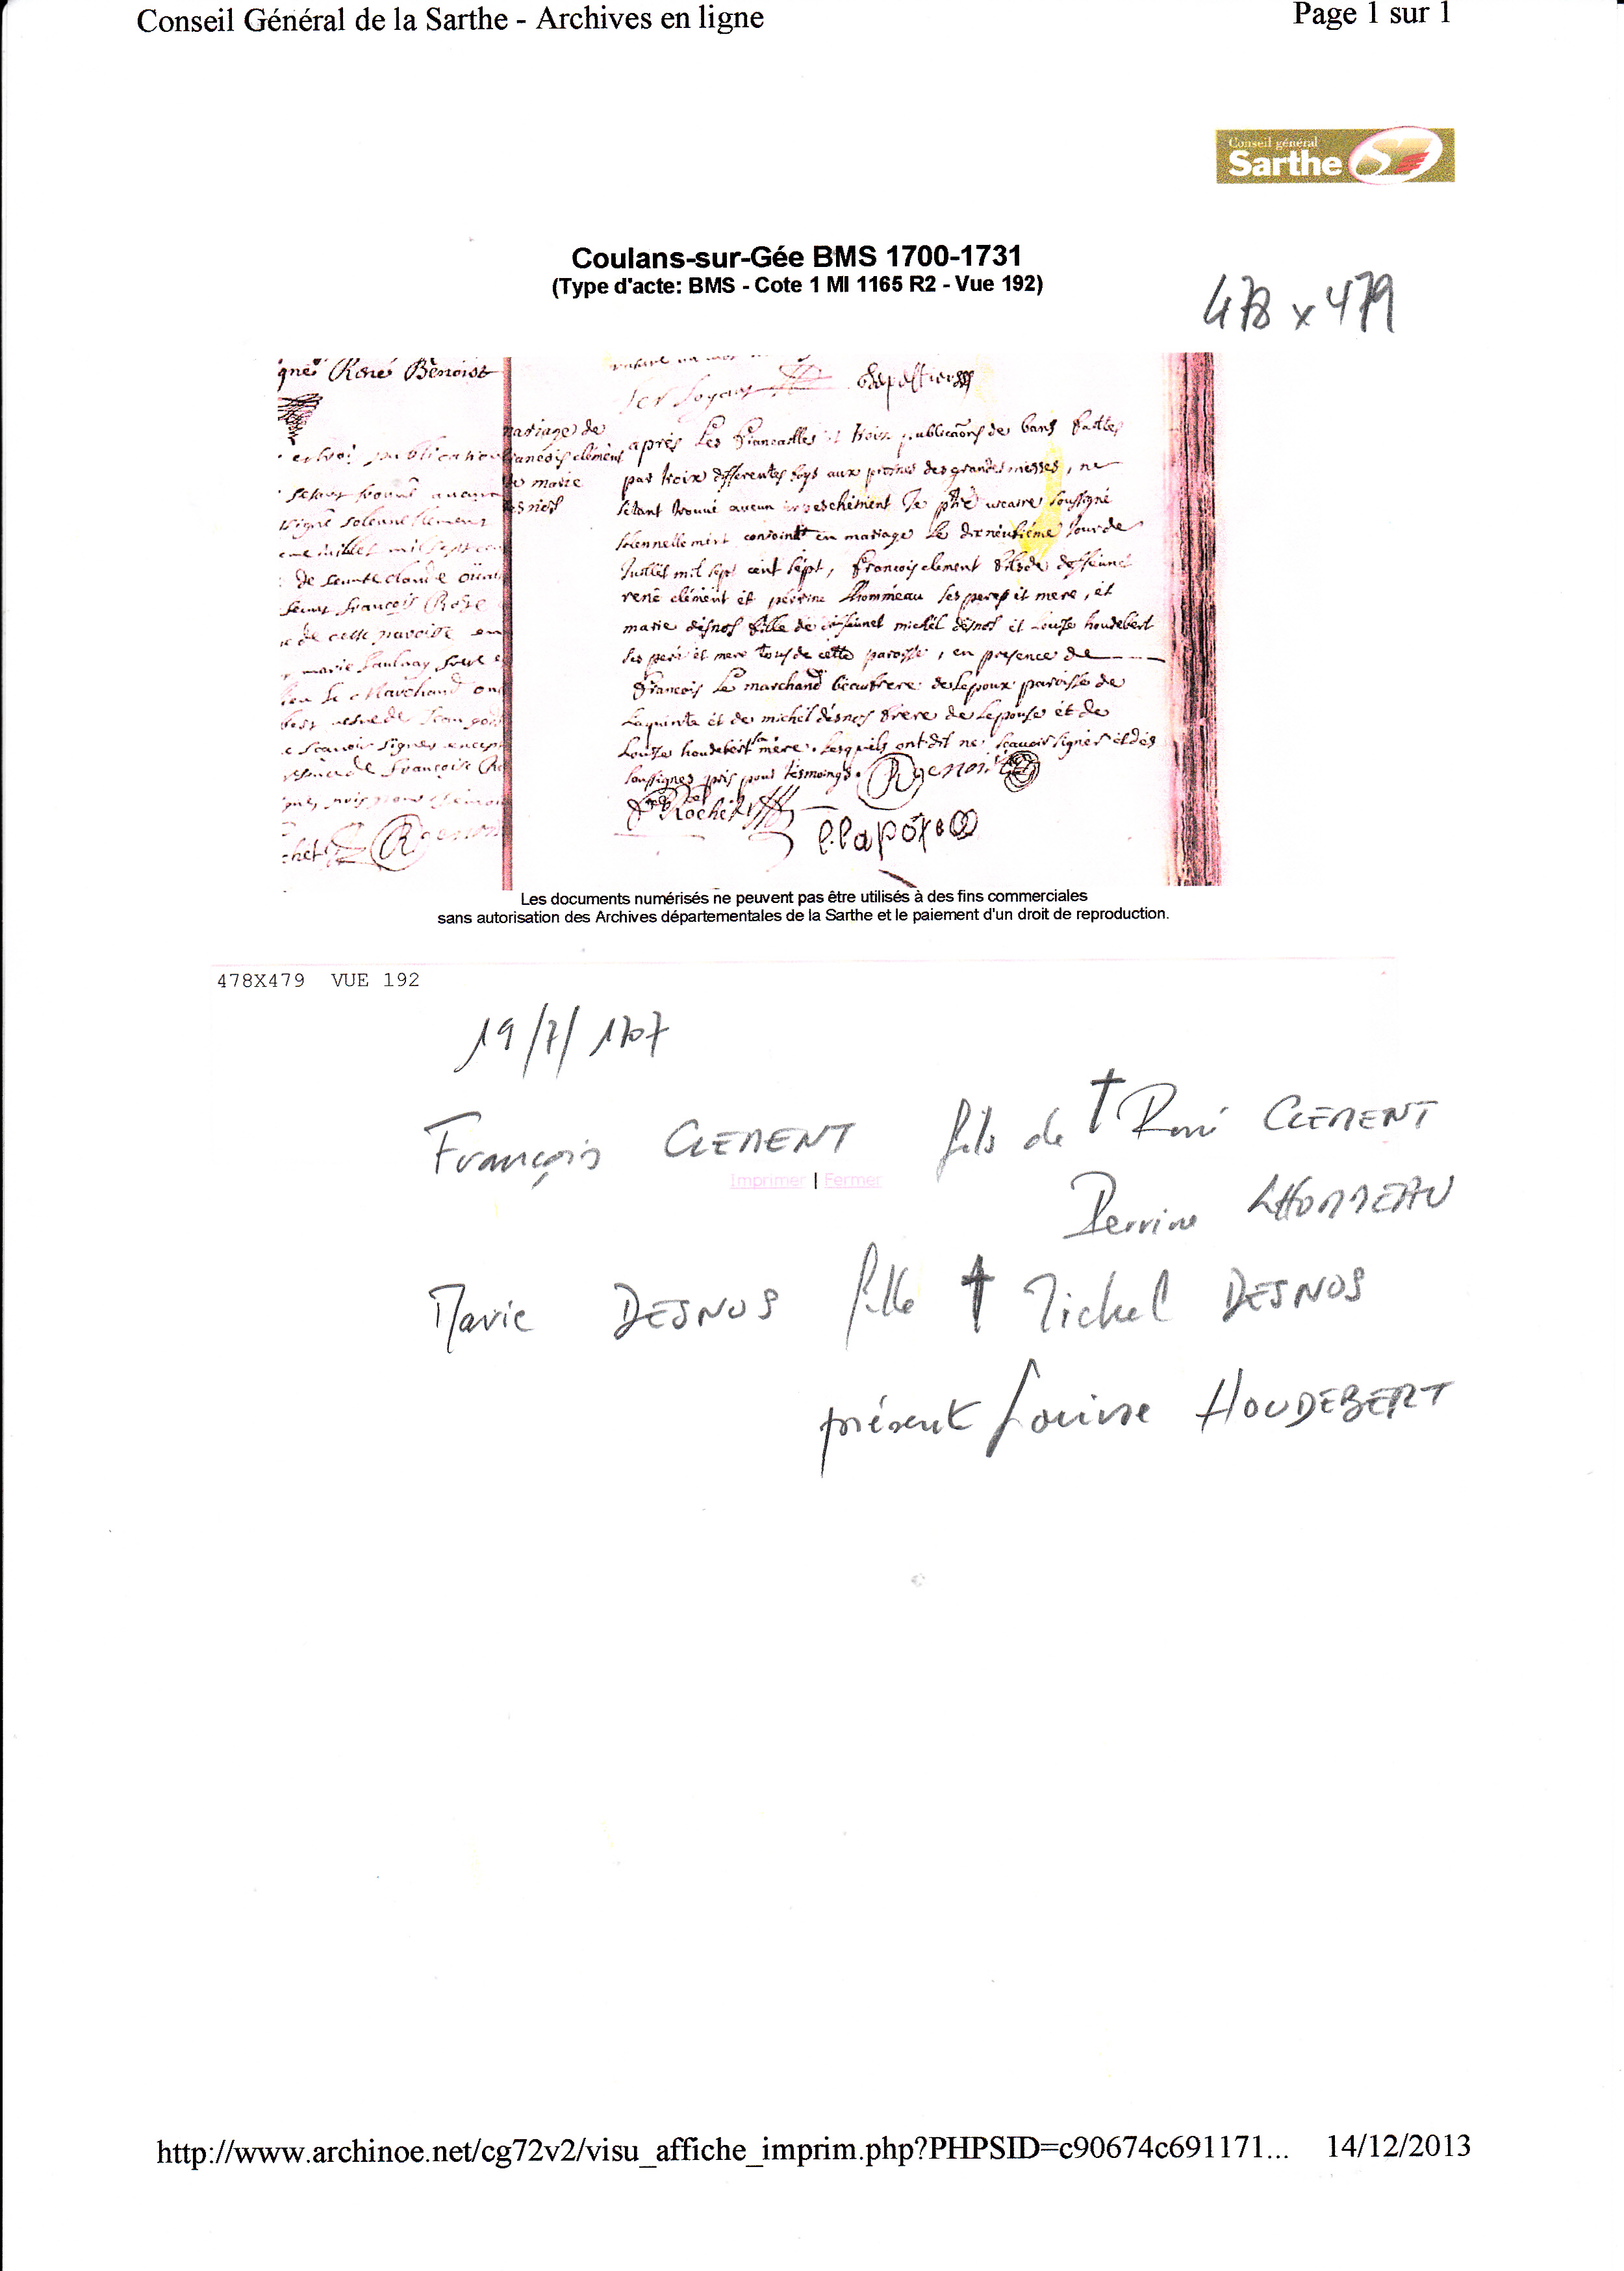 Conseil Général de la Sarthe - Archives en ligne
Page 1 sur 1
Conseil général
Sarthe
Coulans-sur-Gée BMS 1700-1731
(Type d'acte: BMS - Cote 1 MI 1165 R2 - Vue 192)
478 x 479
René Benoist
mariage de
francois clément
marie
desnos
après Les fiancailles et trois publicaõns de bans faittes
par trois differentes foys aux prosnes des grandes messes, ne
sétant trouvé aucun empeschement Je ptre vicaire soussigné
solennellement conjoint en mariage Le dixneufiéme Jour de
Juillet mil sept cent sept, francois clement fils de deffeunct
rené clément et perrine Lhommeau ses peres et mere, et
marie désnos fille de deffeunct michel désnos et Louise houdebert
ses pere et mere tous de cette paroisse, en presence de
francois Le marchand beaufrere de Lepoux paroisse de
Laquinte et de michel désnos frere de Lepouse et de
Louise houdebert sa mere. Lesquels ont dit ne scauoir signer et des
soussignes pris pour tesmoings.
Rocher
Les documents numérisés ne peuvent pas être utilisés à des fins commerciales
sans autorisation des Archives départementales de la Sarthe et le paiement d'un droit de reproduction.
478X479 VUE 192
19/7/1707
François CLEMENT fils de † René CLEMENT
Imprimer | Fermer
Perrine LHOMMEAU
Marie DESNOS fille † Michel DESNOS
présente Louise HOUDEBERT
http://www.archinoe.net/cg72v2/visu_affiche_imprim.php?PHPSID=c90674c691171...
14/12/2013